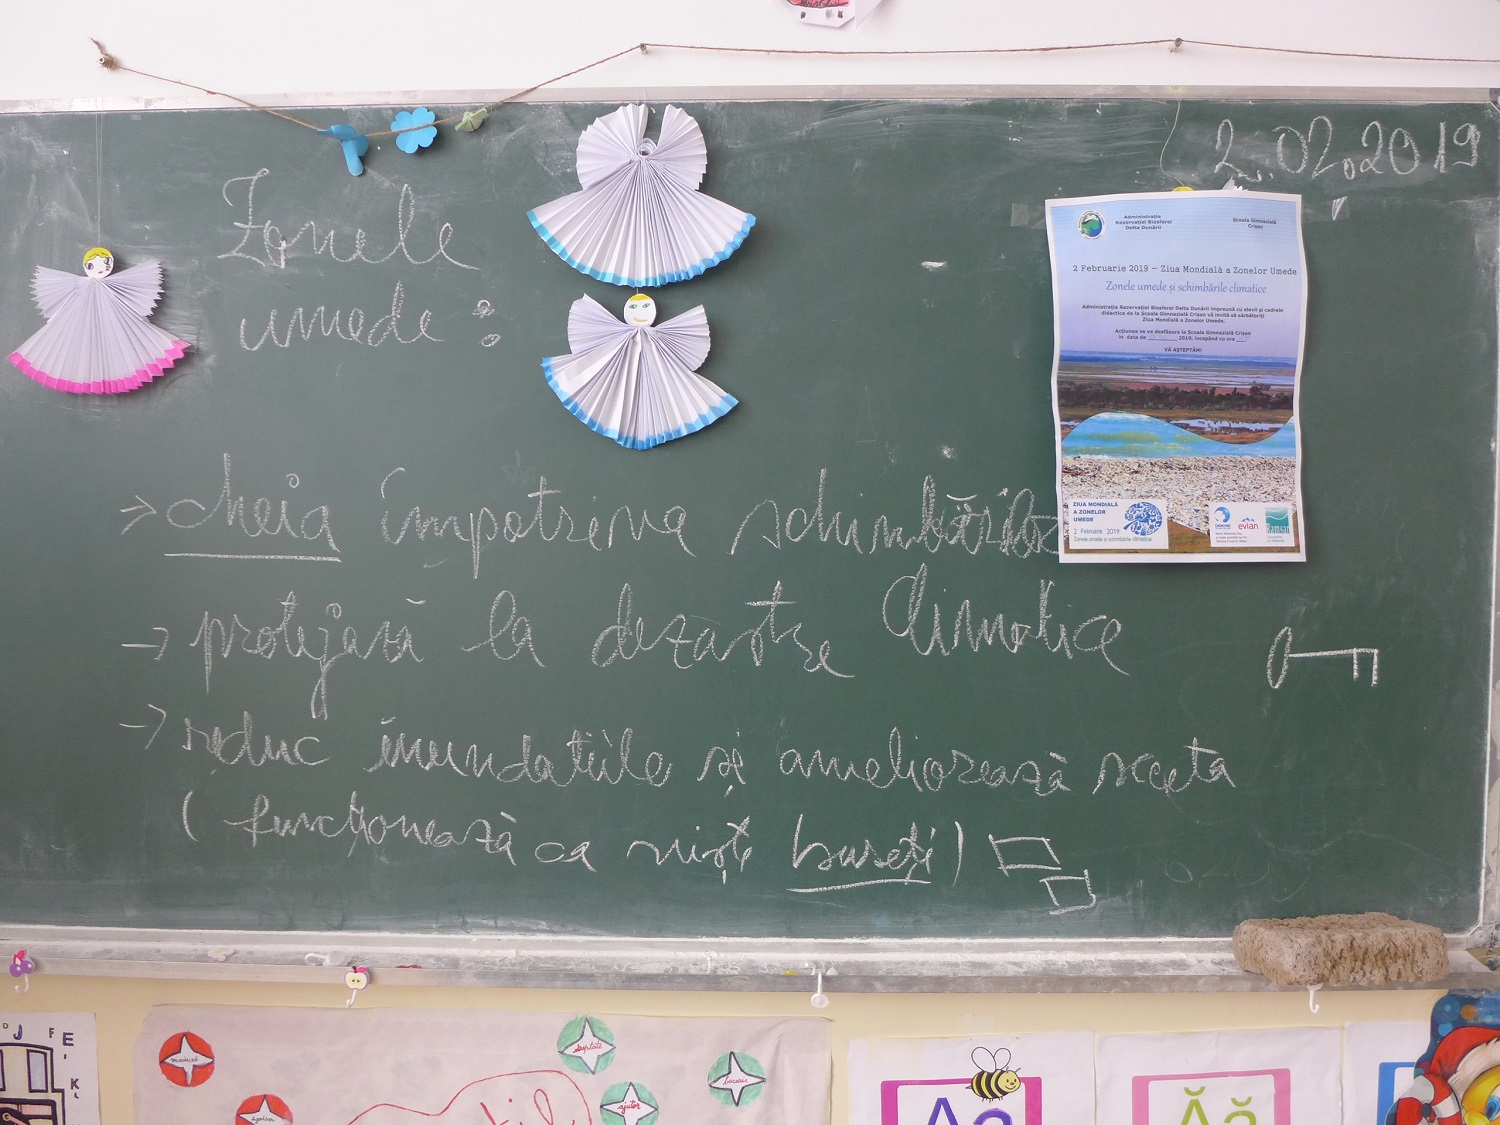 2.02.2019
Zonele
umede:
→ cheia împotriva schimbărilor
climatice
→ protejară la dezastre
→ reduc inundatiile și ameliorează seceta
( funcționează ca niște bureți )
Administrația
Rezervației Biosferei
Delta Dunării
Școala Gimnazială
Crișan
2 Februarie 2019 – Ziua Mondială a Zonelor Umede
Zonele umede și schimbările climatice
Administrația Rezervației Biosferei Delta Dunării împreună cu elevii și cadrele
didactice de la Școala Gimnazială Crișan vă invită să sărbătoriți
Ziua Mondială a Zonelor Umede.
Acțiunea se va desfășura la Școala Gimnazială Crișan
în data de 2019, începând cu ora
VĂ AȘTEPTĂM!
ZIUA MONDIALĂ
A ZONELOR
UMEDE
2 Februarie 2019
Zonele umede și schimbările climatice
DANONE
evian
Ramsar
J F E
K
ajutor
Aa
Ăă